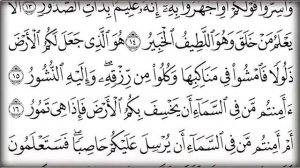 وَأَسِرُّوا۟ قَوْلَكُمْ أَوِ ٱجْهَرُوا۟ بِهِۦٓ إِنَّهُۥ عَلِيمٌۢ بِذَاتِ ٱلصُّدُورِ ١٣ أَلَا
يَعْلَمُ مَنْ خَلَقَ وَهُوَ ٱللَّطِيفُ ٱلْخَبِيرُ ١٤ هُوَ ٱلَّذِى جَعَلَ لَكُمُ ٱلْأَرْضَ
ذَلُولًا فَٱمْشُوا۟ فِى مَنَاكِبِهَا وَكُلُوا۟ مِن رِّزْقِهِۦ وَإِلَيْهِ ٱلنُّشُورُ ١٥
ءَأَمِنتُم مَّن فِى ٱلسَّمَآءِ أَن يَخْسِفَ بِكُمُ ٱلْأَرْضَ فَإِذَا هِىَ تَمُورُ ١٦
أَمْ أَمِنتُم مَّن فِى ٱلسَّمَآءِ أَن يُرْسِلَ عَلَيْكُمْ حَاصِبًا فَسَتَعْلَمُونَ